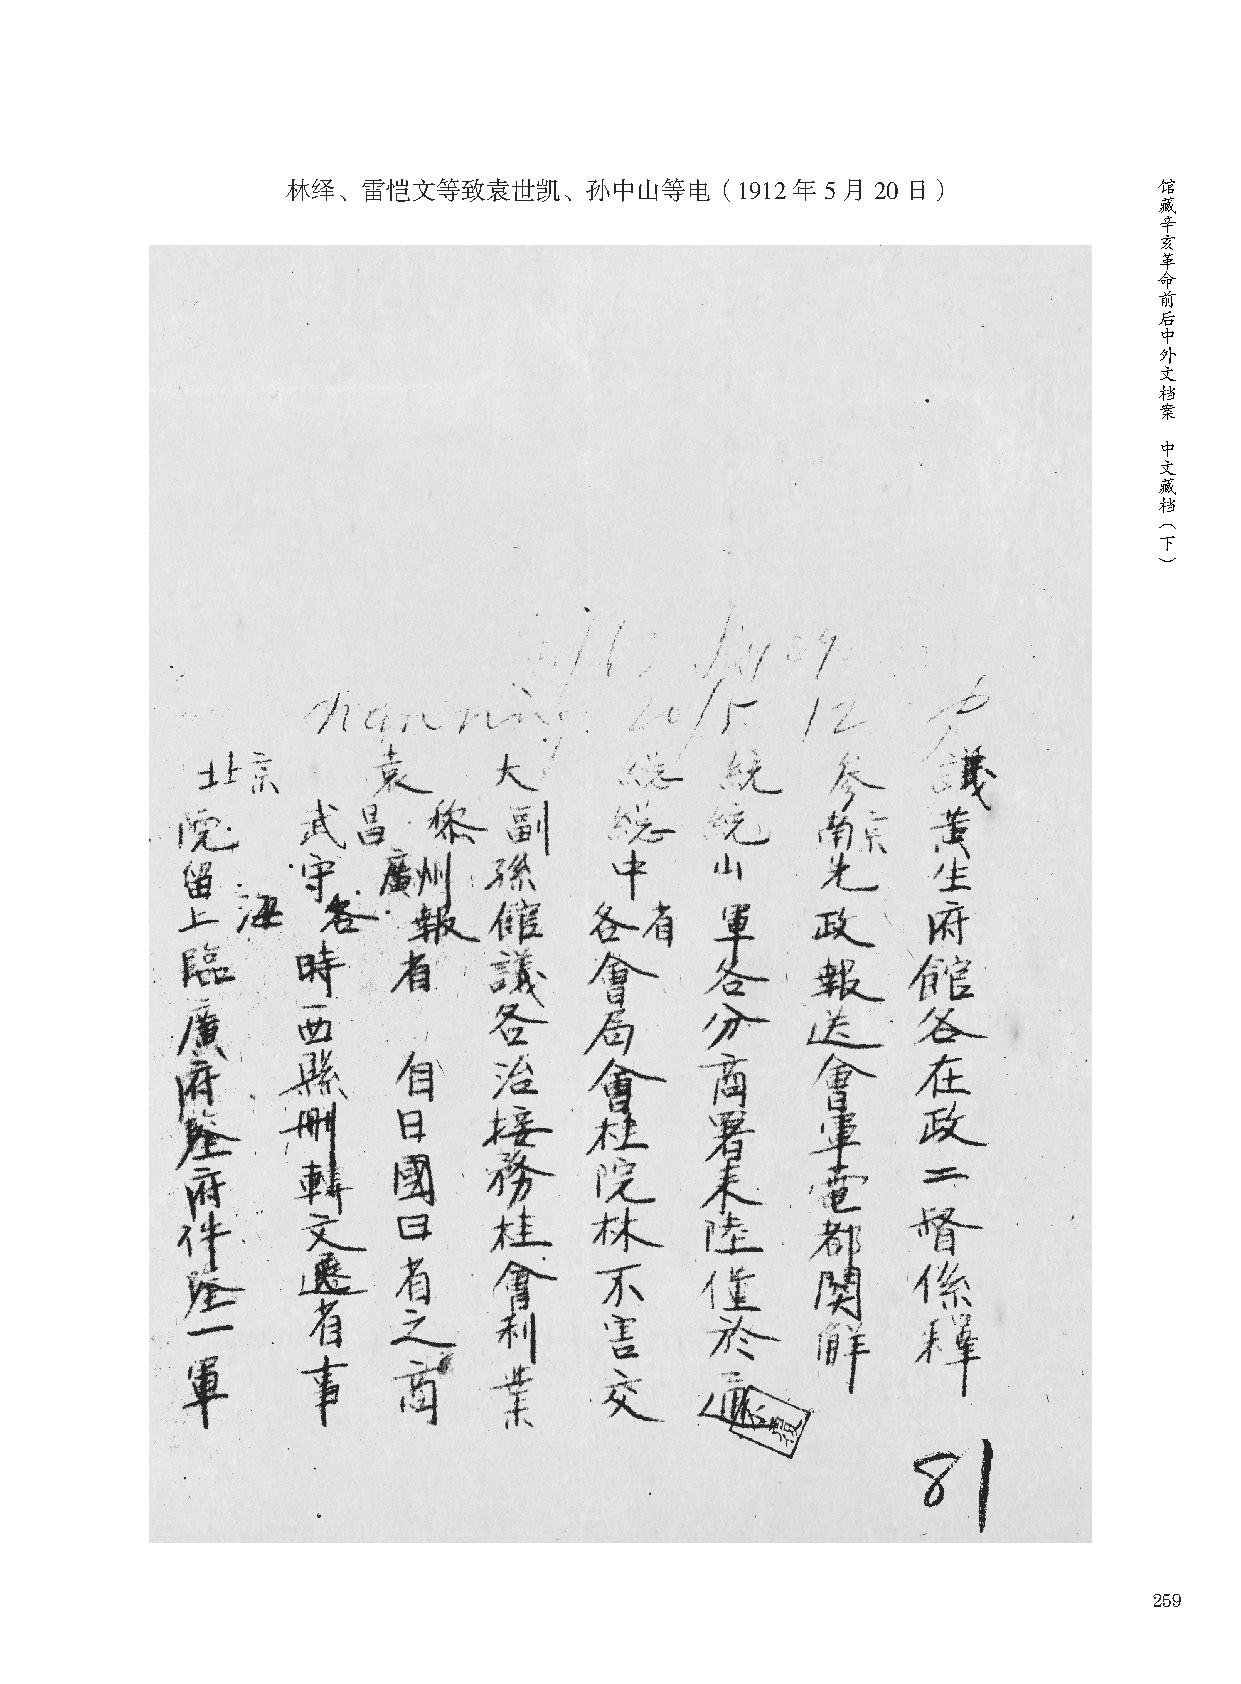 林绎、雷恺文等致袁世凯、孙中山等电（1912 年 5 月 20 日）
馆藏辛亥革命前后中外文档案 中文藏档（下）
nanning 20/5 12
北京 袁 大 總 統 參 議
院 武昌 黎 副 總 統 南京 黃
留守 廣州 孫 中 山 先 生
上海 各 報館 各省 軍 政 府
臨時 省 議會 各 報 館
廣西 各局 分送 各
府縣 自治會 商會在
陸刪日接桂署軍政
府轉國務院耒電二
件文日桂林陸都督
陸遷省會不僅関係
一省之利害於解釋
軍事商業交通
81
259